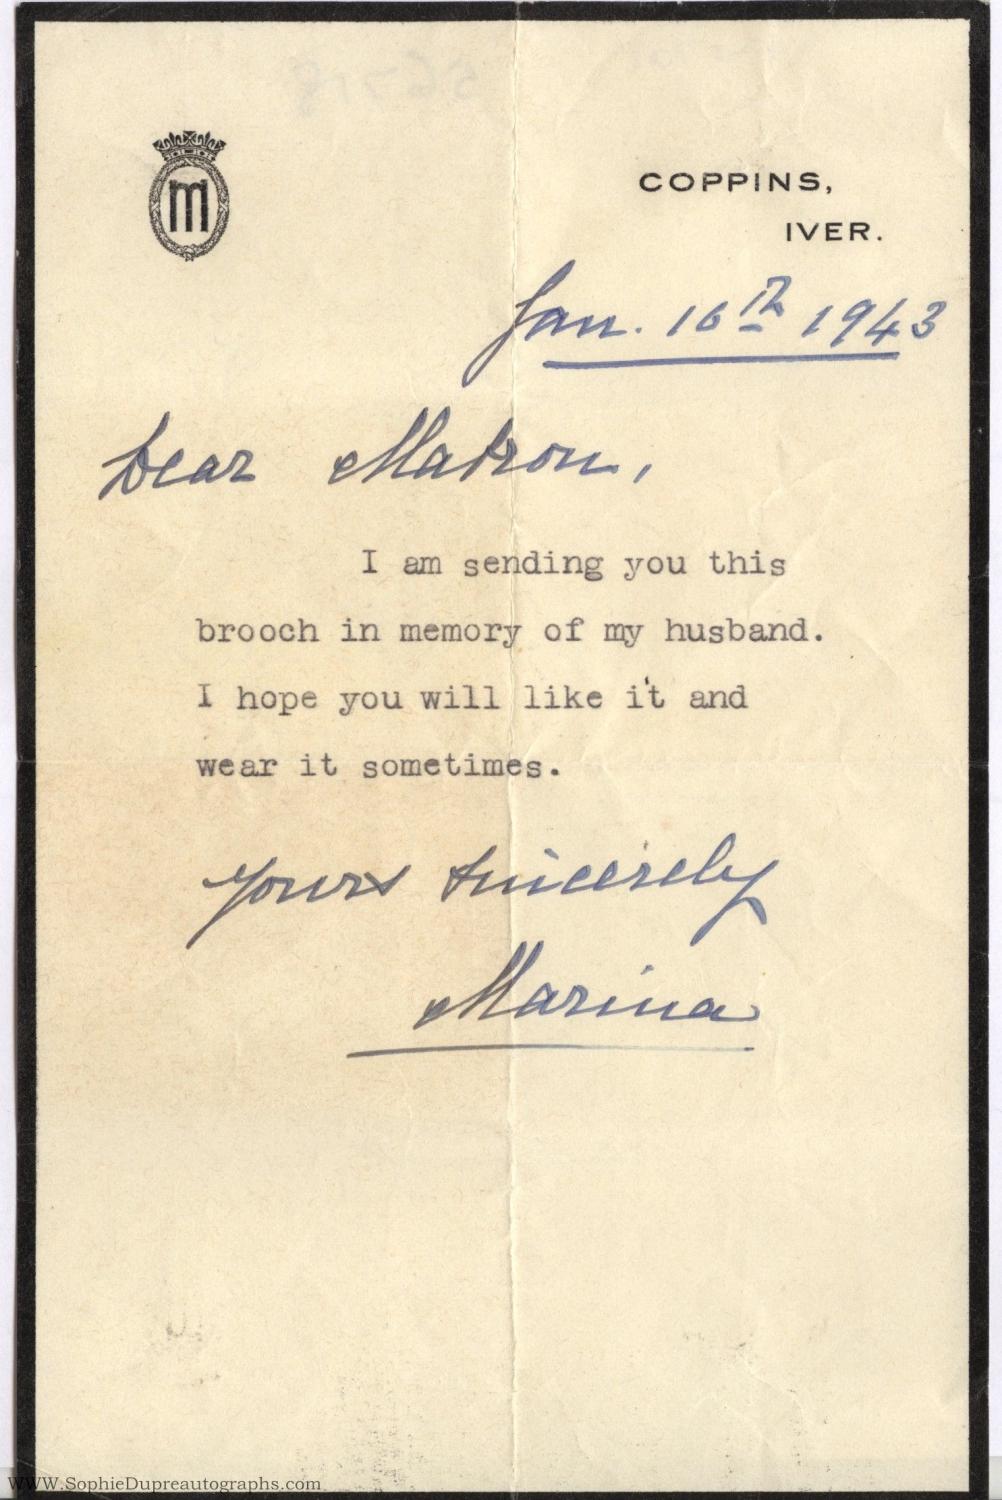 M
COPPINS,
IVER.
Jan. 16th 1943
Dear Matron,
I am sending you this
brooch in memory of my husband.
I hope you will like it and
wear it sometimes.
Yours sincerely
Marina
WWW.SophieDupreautographs.com